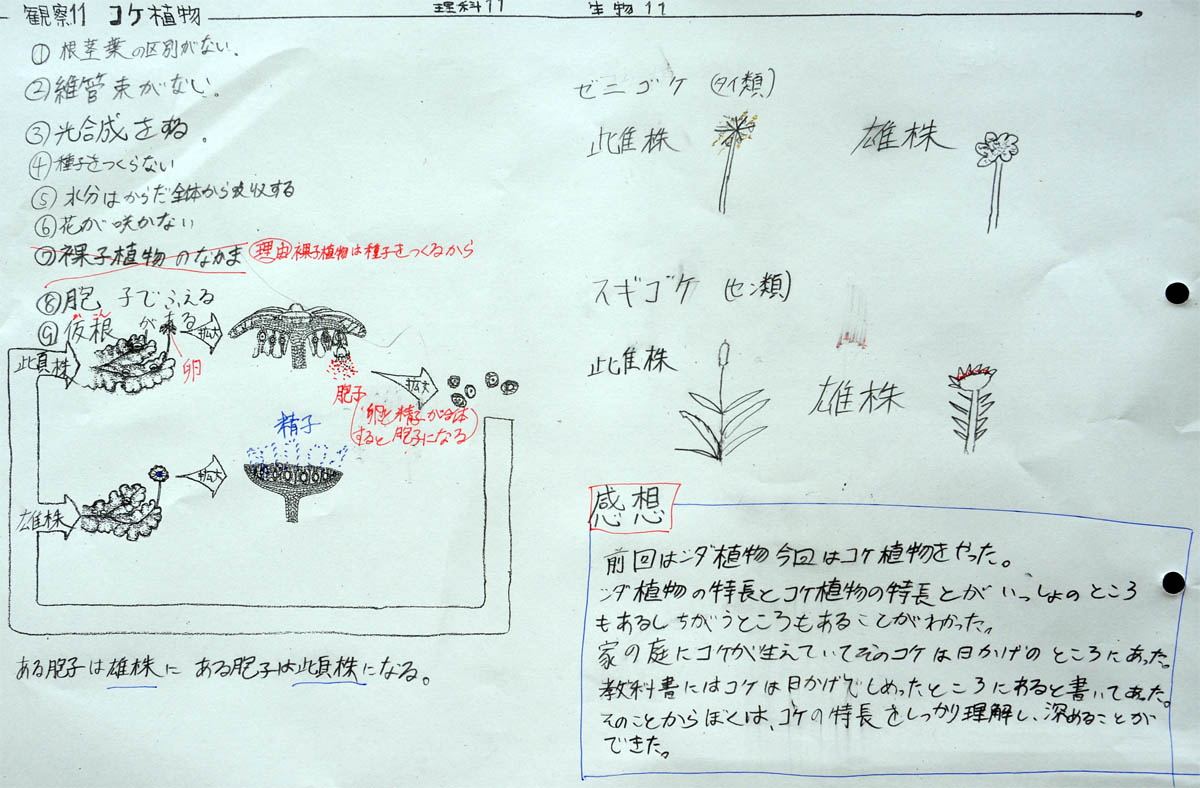 観察11 コケ植物
理科11
生物11
① 根茎葉の区別がない.
② 維管束がない.
③ 光合成をする.
④ 種子をつくらない
⑤ 水分はからだ全体から吸収する
⑥ 花が咲かない
⑦ 裸子植物のなかま 理由 裸子植物は種子をつくるから
⑧ 胞子でふえる
⑨ 仮根がある
かこん
雌株
拡大
卵
胞子
拡大
卵と精子が合体
すると胞子になる
精子
雄株
拡大
ある胞子は雄株に ある胞子は雌株になる。
ゼニゴケ (タイ類)
雌株
雄株
スギゴケ (セン類)
雌株
雄株
感想
前回はシダ植物今回はコケ植物をやった。
シダ植物の特長とコケ植物の特長とがいっしょのところ
もあるしちがうところもあることがわかった。
家の庭にコケが生えていてそのコケは日かげのところにあった。
教科書にはコケは日かげでしめったところにあると書いてあった。
そのことからぼくは、コケの特長をしっかり理解し、深めることが
できた。